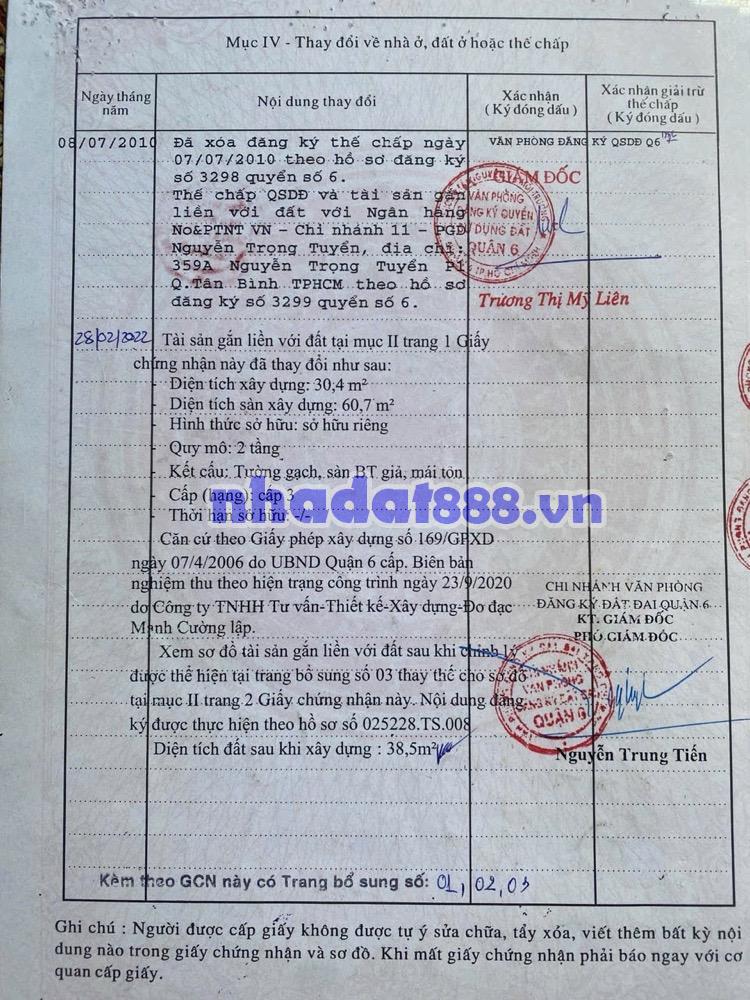 Mục IV - Thay đổi về nhà ở, đất ở hoặc thế chấp
Ngày tháng năm
Nội dung thay đổi
Xác nhận
( Ký đóng dấu )
Xác nhận giải trừ
thế chấp
( Ký đóng dấu )
08/07/2010
Đã xóa đăng ký thế chấp ngày
07/07/2010 theo hồ sơ đăng ký
số 3298 quyển số 6.
Thế chấp QSDĐ và tài sản gắn
liền với đất với Ngân hàng
No&PTNT VN - Chi nhánh 11 - PGD
Nguyễn Trọng Tuyển, địa chỉ:
359A Nguyễn Trọng Tuyển P1
Q.Tân Bình TPHCM theo hồ sơ
đăng ký số 3299 quyển số 6.
VĂN PHÒNG ĐĂNG KÝ QSDĐ Q6
GIÁM ĐỐC
VĂN PHÒNG
ĐĂNG KÝ QUYỀN
SỬ DỤNG ĐẤT
QUẬN 6
TP.HỒ CHÍ MINH
Trương Thị Mỹ Liên
28/02/2022
Tài sản gắn liền với đất tại mục II trang 1 Giấy
chứng nhận này đã thay đổi như sau:
- Diện tích xây dựng: 30,4 m²
- Diện tích sàn xây dựng: 60,7 m²
- Hình thức sở hữu: sở hữu riêng
- Quy mô: 2 tầng
- Kết cấu: Tường gạch, sàn BT giả, mái tôn
- Cấp (hạng): cấp 3
- Thời hạn sở hữu: -/-
nhadat888.vn
Căn cứ theo Giấy phép xây dựng số 169/GPXD
ngày 07/4/2006 do UBND Quận 6 cấp. Biên bản
nghiệm thu theo hiện trạng công trình ngày 23/9/2020
do Công ty TNHH Tư vấn-Thiết kế-Xây dựng-Đo đạc
Mạnh Cường lập.
Xem sơ đồ tài sản gắn liền với đất sau khi chỉnh lý
được thể hiện tại trang bổ sung số 03 thay thế cho sơ đồ
tại mục II trang 2 Giấy chứng nhận này. Nội dung đăng
ký được thực hiện theo hồ sơ số 025228.TS.008
Diện tích đất sau khi xây dựng : 38,5m²
CHI NHÁNH VĂN PHÒNG
ĐĂNG KÝ ĐẤT ĐAI QUẬN 6
KT. GIÁM ĐỐC
PHÓ GIÁM ĐỐC
CHI NHÁNH
VĂN PHÒNG
ĐĂNG KÝ ĐẤT ĐAI
QUẬN 6
Nguyễn Trung Tiến
Kèm theo GCN này có Trang bổ sung số: 01, 02, 03
Ghi chú : Người được cấp giấy không được tự ý sửa chữa, tẩy xóa, viết thêm bất kỳ nội
dung nào trong giấy chứng nhận và sơ đồ. Khi mất giấy chứng nhận phải báo ngay với cơ
quan cấp giấy.